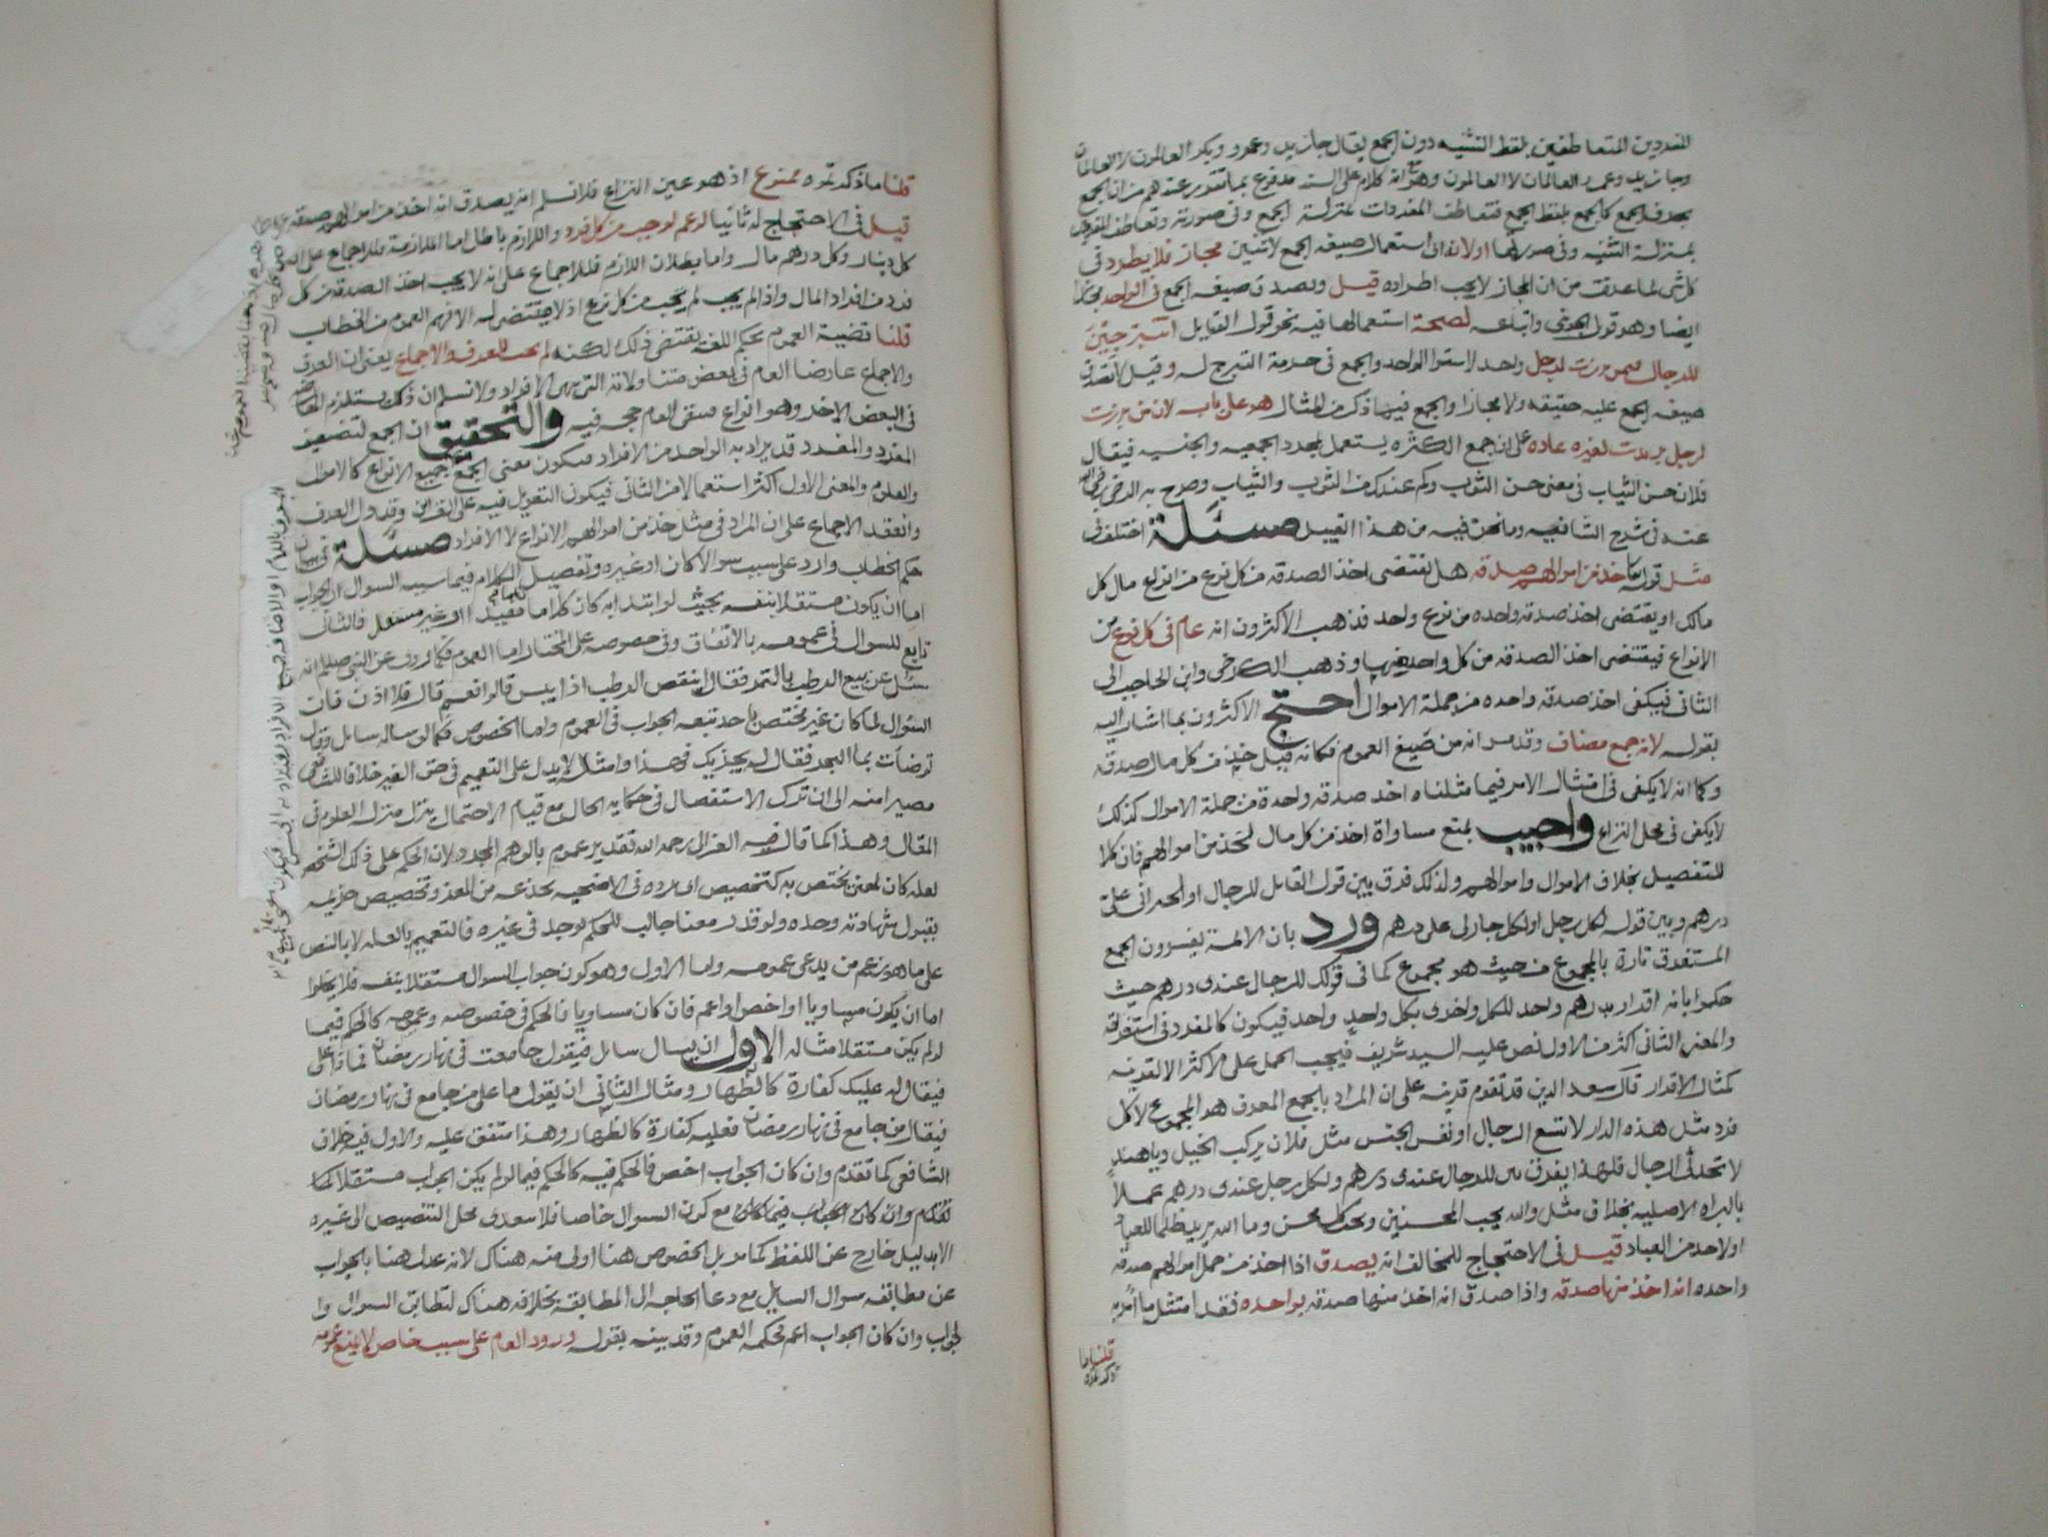 المفردين المتعاطفين بلفظ التثنيه دون الجمع يقال جا زيد وعمرو وبكر العالمون لا العالمان
وجا زيد وعمرو العالمان لا العالمون وهو انه كلام على السند مدفوع بما تقرر عندهم من ان الجمع
بحرف الجمع كالجمع بلفظ الجمع فتعاطف المفردات بمنزلة الجمع وفى صورته وتعاطف المفردين
بمنزلة التثنيه وفى صورتها اولا فلان استعمال صيغه الجمع لاثنين مجاز فلا يطرد فى
كل شى لما عرفت من ان المجاز لا يجب اطراده قيل وتصدق صيغه الجمع فى الواحد مجازا
ايضا وهو قول الجوينى واتباعه لصحة استعمالها فيه نحو قول القايل اتتبرجين
للرجال فيمن برزت لرجل واحد لاستوا الواحد والجمع فى حرمة التبرج له وقيل لا تصدق
صيغه الجمع عليه حقيقه ولا مجازا والجمع فيما ذكر من المثال هو على بابه لان من برزت
لرجل برزت لغيره عاده على ان جمع الكثره يستعمل لمجرد الجمعيه والجنسيه فيقال
فلان حسن الثياب فى معنى حسن الثوب وكم عندك من الثوب والثياب وصرح به الرضى رضى الله
عنه فى شرح الشافيه وما نحن فيه من هذا القبيل مسئلة اختلف فى
مثل قوله تعالى خذ من اموالهم صدقه هل يقتضى اخذ الصدقه من كل نوع من انواع مال كل
مالك او يقتضى اخذ صدقه واحده من نوع واحد فذهب الاكثرون انه عام فى كل نوع من
الانواع فيقتضى اخذ الصدقه من كل واحد منها وذهب الكرخى وابن الحاجب الى
الثانى فيكفى اخذ صدقه واحده من جملة الاموال احتج الاكثرون بما اشار اليه
بقوله لانه جمع مضاف وقد مر انه من صيغ العموم فكانه قيل خذ من كل مال صدقه
وكما انه لا يكفى فى امتثال الامر فيما مثلناه اخذ صدقه واحدة من جملة الاموال كذلك
لا يكفى فى محل النزاع واجيب بمنع مساواة اخذ من كل مال لخذ من اموالهم فان كلا
للتفصيل بخلاف الاموال واموالهم ولذلك فرق بين قول القايل للرجال او لجيرانى على
درهم وبين قوله لكل رجل او لكل جار لى على درهم ورد بان الائمة يفسرون الجمع
المستغرق تارة بالمجموع من حيث هو مجموع كما فى قولك للرجال عندى درهم حيث
حكموا بانه اقرار بدرهم واحد للكل واخرى بكل واحد واحد فيكون كالمفرد فى استغراقه
والمعنى الثانى اكثر من الاول نص عليه السيد شريف فيجب الحمل على الاكثر الا لقرينه
كمثال الاقرار قال سعد الدين قد تقوم قرينه على ان المراد بالجمع المعرف هو المجموع لا كل
فرد مثل هذه الدار لا تسع الرجال او نفس الجنس مثل فلان يركب الخيل ويا هند
لا تحدثى الرجال فلهذا يفرق بين للرجال عندى درهم ولكل رجل عندى درهم عملا
بالبراه الاصليه بخلاف مثل والله يحب المحسنين ويحب كل محسن وما الله يريد ظلما للعباد
او لاحد من العباد قيل فى الاحتجاج للمخالف انه يصدق اذا اخذ من جمل اموالهم صدقه
واحده انه اخذ منها صدقه واذا صدق انه اخذ منها صدقه بواحده فقد امتثل ما امر به
قلنا ما
ذكرتموه
قلنا ما ذكرتموه ممنوع اذ هو عين النزاع فلا نسلم انه يصدق انه اخذ من اموالهم صدقه
قيل فى الاحتجاج له ثانيا لو عم لوجب من كل فرد واللازم باطل اما الملازمة فللاجماع على
كل دينار وكل درهم مال واما بطلان اللازم فللاجماع على انه لا يجب اخذ الصدقه من كل
فرد من افراد المال واذا لم يجب لم يجب من كل نوع اذ لا مقتضى له الا فهم العموم من الخطاب
قلنا قضية العموم بحكم اللغة تقتضى ذلك لكنه لم يجب للعرف والاجماع يعنى ان العرف
والاجماع عارضا العام فى بعض متناولاته التى هى الافراد ولا نسلم ان ذلك يستلزم
فى البعض الاخر وهو انواع فبقى العام حجه فيه والتحقيق ان الجمع لتضعيف
المفرد والمفرد قد يراد به الواحد من الافراد فيكون معنى الجمع جميع الانواع كالاموال
والعلوم والمعنى الاول اكثر استعمالا من الثانى فيكون التعويل فيه على القراين وقد دل العرف
وانعقد الاجماع على ان المراد فى مثل خذ من اموالهم الانواع لا الافراد مسئلة فى بيان
حكم الخطاب وارد على سبب سوالا كان او غيره وتفصيل الكلام فيما سببه السوال ان الجواب
اما ان يكون مستقلا بنفسه بحيث لو ابتدا به كان كلاما مفيدا او غير مستقل فالثانى
تابع للسوال فى عمومه بالاتفاق وفى خصوصه على المختار اما العموم فكما روى عن النبى صلعم انه
سئل عن بيع الرطب بالتمر فقال اينقص الرطب اذا يبس قالوا نعم قال فلا اذن فان
السوال لما كان غير مختص باحد تبعه الجواب فى العموم واما الخصوص فكما لو ساله سايل وقال
توضات بما البحر فقال له يجزيك فهذا وامثاله لا يدل على التعميم فى حق الغير خلافا للشافعى
مصيرا منه الى ان ترك الاستفصال فى حكايه الحال مع قيام الاحتمال ينزل منزلة العموم فى
المقال وهذا كما قال فيه الغزالى رحمه الله تقدير عموم بالوهم المجرد ولان الحكم على ذلك الشخص
لعله كان لمعنى يختص به كتخصيص ابى برده فى الاضحيه بجذعه من المعز وتخصيص خزيمه
بقبول شهادته وحده ولو قدر معنا جالب للحكم لوجد فى غيره فالتعميم بالعله لا بالنص
على ما هو زعم من يدعى عمومه واما الاول وهو كون جواب السوال مستقلا بنفسه فلا يخلوا
اما ان يكون مساويا او اخص او اعم فان كان مساويا فالحكم فى خصوصه وعمومه كالحكم فيما
لو لم يكن مستقلا مثاله الاول ان يسال سايل فيقول جامعت فى نهار رمضان فماذا على
فيقال له عليك كفارة كالظهار ومثال الثانى ان يقول ما على من جامع فى نهار رمضان
فيقال من جامع فى نهار رمضان فعليه كفارة كالظهار وهذا متفق عليه والاول فيه خلاف
الشافعى كما تقدم وان كان الجواب اخص فالحكم فيه كالحكم فيما لو لم يكن الجواب مستقلا كما
تقدم وان كان الجواب فيما كان مع كون السوال خاصا فلا يعدى محل التنصيص الى غيره
الا بدليل خارج عن اللفظ كما مر بل الخصوص هنا اولى منه هناك لانه عدل هنا بالجواب
عن مطابقه سوال السايل مع دعا الحاجه الى المطابقه بخلافه هناك لتطابق السوال وا
لجواب وان كان الجواب اعم فحكمه العموم وقد بينه بقوله ورود العام على سبب خاص لا يمنع عمومه